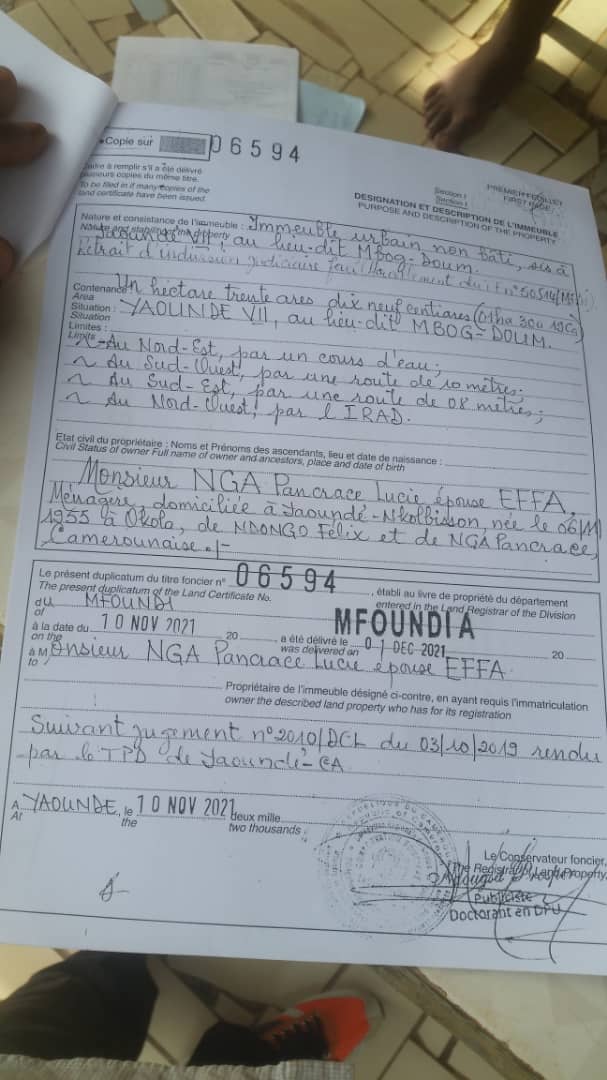 Copie sur 06594
Cadre à remplir s'il a été délivré
plusieurs copies du même titre.
To be filled in if many copies of the
land certificate have been issued.
PREMIER FEUILLET
FIRST PAGE
Section I
Section I
DESIGNATION ET DESCRIPTION DE L'IMMEUBLE
PURPOSE AND DESCRIPTION OF THE PROPERTY
Nature et consistance de l'immeuble : Immeuble urbain non bâti, sis à
Yaoundé VII, au lieu-dit Mbog-Doum.
Retrait d'indivision judiciaire
Contenance Un hectare trente ares dix neuf centiares (01ha 30a 19ca)
Area
Situation : YAOUNDE VII, au lieu-dit MBOG-DOUM.
Situation
Limites :
Limits
~ Au Nord-Est, par un cours d'eau;
~ Au Sud-Ouest, par une route de 10 mètres;
~ Au Sud-Est, par une route de 08 mètres;
~ Au Nord-Ouest, par l'IRAD.
Etat civil du propriétaire : Noms et Prénoms des ascendants, lieu et date de naissance :
Civil Status of owner Full name of owner and ancestors, place and date of birth
Monsieur NGA Pancrace Lucie épouse EFFA,
Ménagère, domiciliée à Yaoundé-Nkolbisson, née le 06/11/
1955 à Okola, de NDONGO Félix et de NGA Pancrace,
Camerounaise ./-
Le présent duplicatum du titre foncier n° 06594 , établi au livre de propriété du département
The present duplicatum of the Land Certificate No. entered in the Land Registrar of the Division
du MFOUNDI MFOUNDI A
of
à la date du 10 NOV 2021 20 a été délivré le 01 DEC 2021 20
on the was delivered on
à Monsieur NGA Pancrace Lucie épouse EFFA
to
Propriétaire de l'immeuble désigné ci-contre, en ayant requis l'immatriculation
owner the described land property who has for its registration
Suivant jugement n°2010/DCL du 03/10/2019 rendu
par le TPD de Yaoundé-CA
A YAOUNDE, le 10 NOV 2021 deux mille
At the two thousands
Le Conservateur foncier,
The Registrar Land Property,
Publiciste
Doctorant en DPU